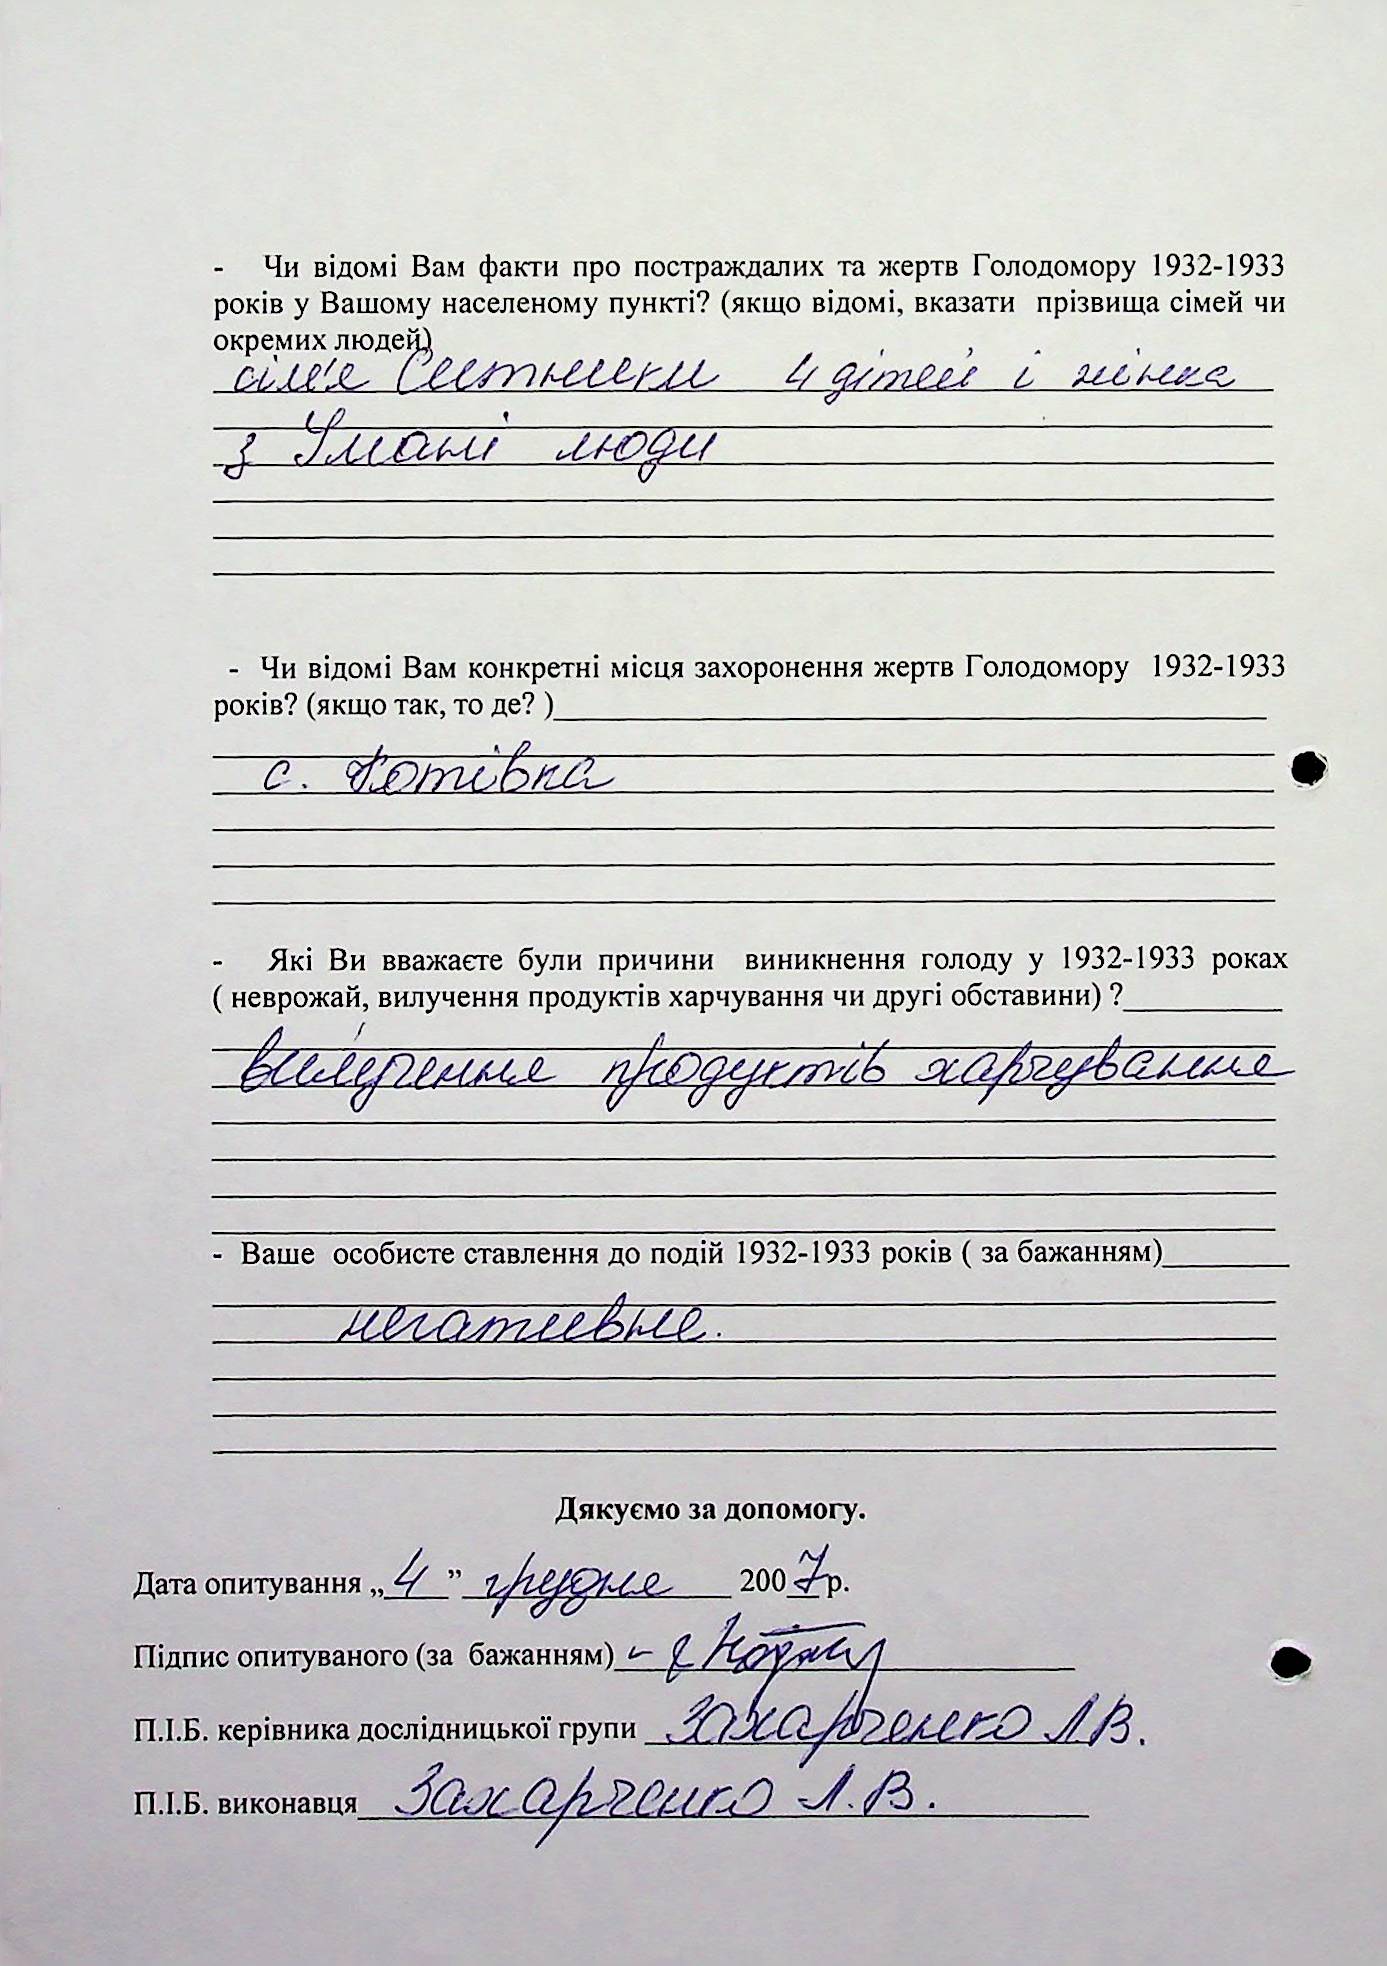 - Чи відомі Вам факти про постраждалих та жертв Голодомору 1932-1933
років у Вашому населеному пункті? (якщо відомі, вказати прізвища сімей чи
окремих людей)
сім'я Ситники 4 дітей і жінка
з Умані люди
- Чи відомі Вам конкретні місця захоронення жертв Голодомору 1932-1933
років? (якщо так, то де? )
с. Котівка
- Які Ви вважаєте були причини виникнення голоду у 1932-1933 роках
( неврожай, вилучення продуктів харчування чи другі обставини) ?
вилучення продуктів харчування
- Ваше особисте ставлення до подій 1932-1933 років ( за бажанням)
негативне.
Дякуємо за допомогу.
Дата опитування „ 4 ” грудня 2007 р.
Підпис опитуваного (за бажанням)
П.І.Б. керівника дослідницької групи Захарченко Л.В.
П.І.Б. виконавця Захарченко Л.В.